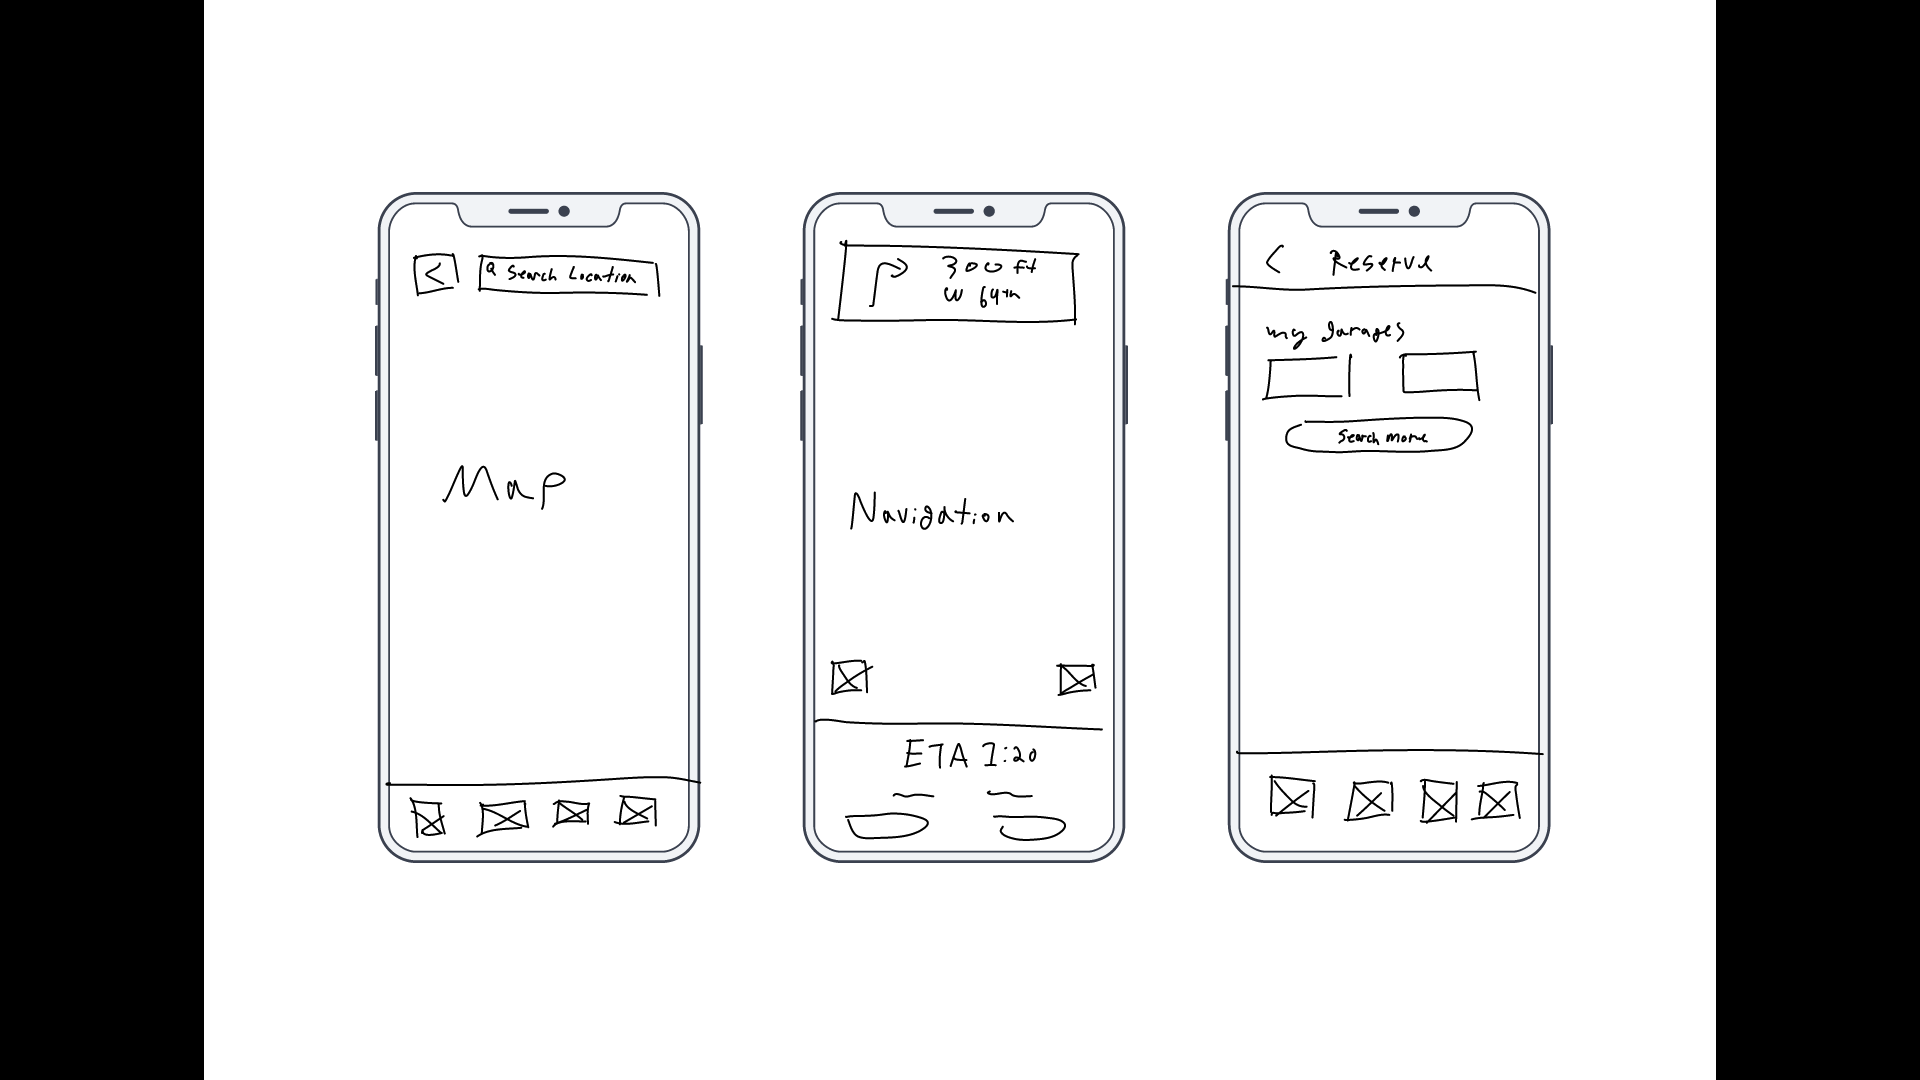 <
Search Location
Map
300 ft
W 64th
Navigation
ETA 1:20
< Reserve
my garages
Search more